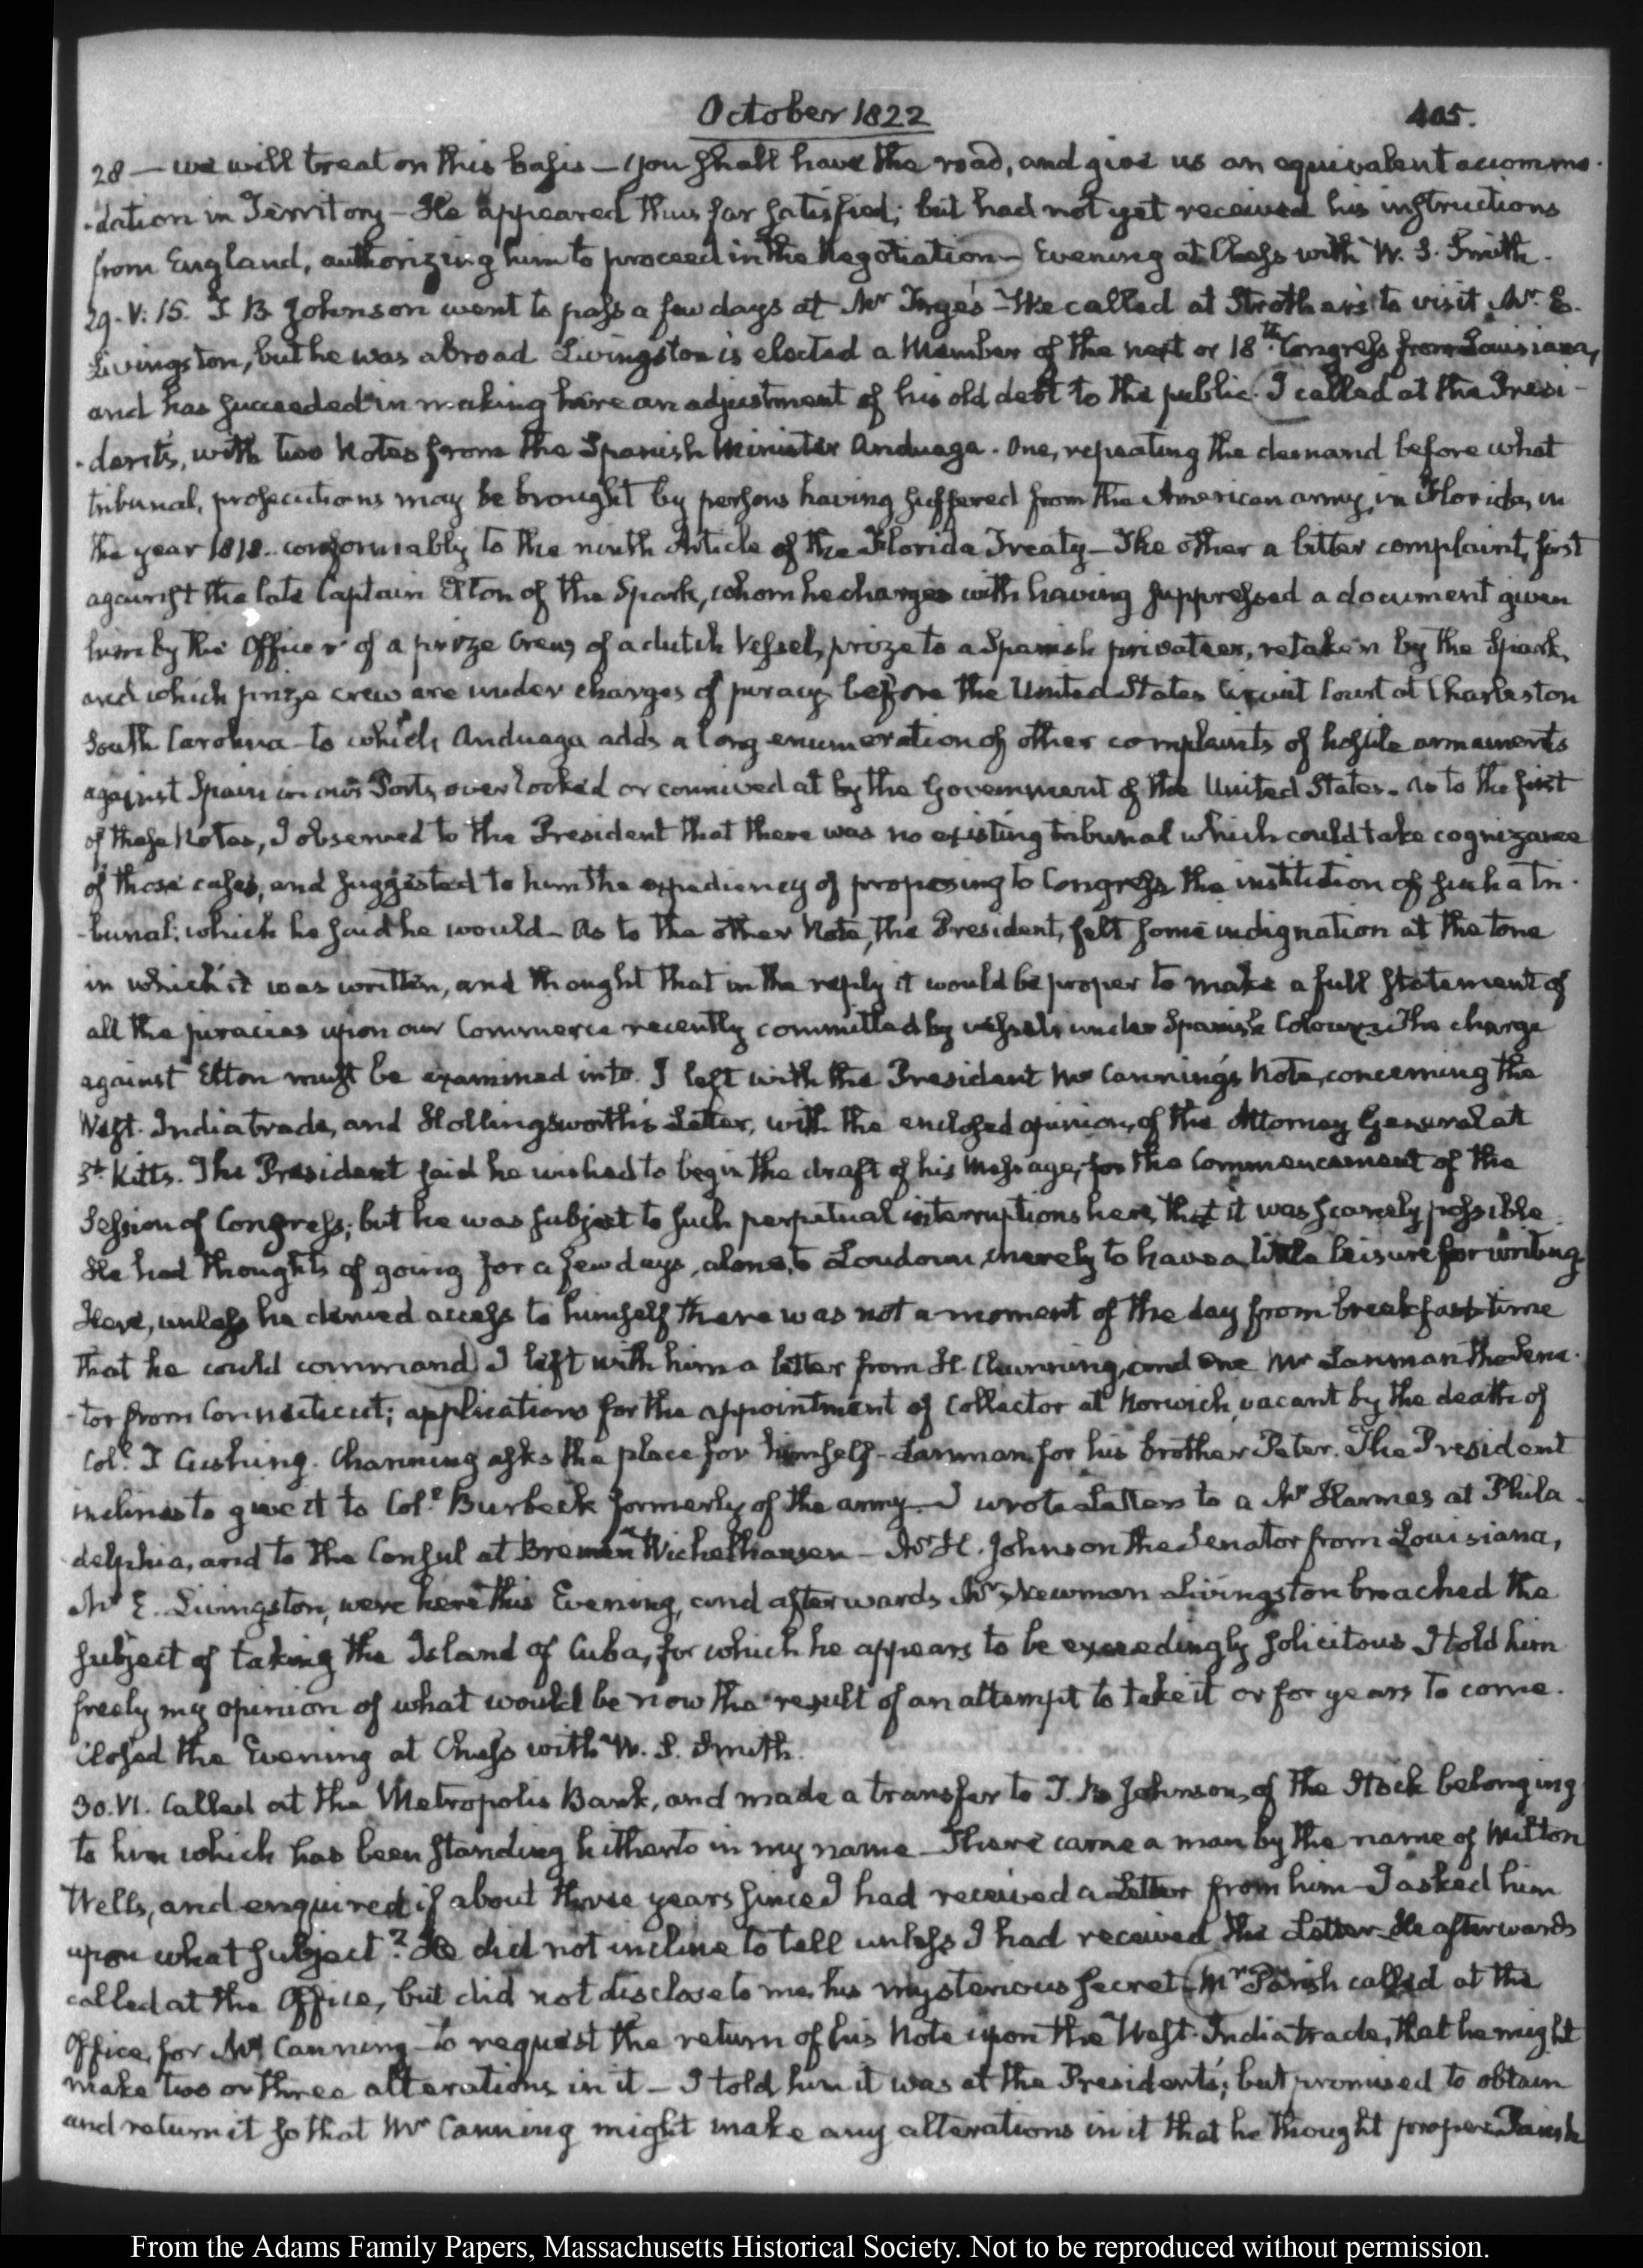 October 1822
405.
28 — we will treat on this basis — you shall have the road, and give us an equivalent accommo-
-dation in Territory — He appeared thus far satisfied; but had not yet received his instructions
from England, authorizing him to proceed in the Negotiation — Evening at Chess with W. S. Smith.
29. V: 15. T B Johnson went to pass a few days at Mr — We called at Strother's to visit Mr E.
Livingston, but he was abroad Livingston is elected a Member of the next or 18th Congress from Louisiana,
and has succeeded in making here an adjustment of his old debt to the public. I called at the Presi-
-dent's, with two Notes from the Spanish Minister Anduaga. One, repeating the demand before what
tribunal, prosecutions may be brought by persons having suffered from the American army, in Florida, in
the year 1818. conformably to the ninth Article of the Florida Treaty — The other a bitter complaint, first
against the late Captain Elton of the Spark, whom he charges with having suppressed a document given
him by the Officer of a prize Crew, of a dutch Vessel, prize to a Spanish privateer, retaken by the Spark,
and which prize crew are under charges of piracy before the United States Circuit Court at Charleston
South Carolina to which Anduaga adds a long enumeration of other complaints of hostile armaments
against Spain in our Ports, overlooked or connived at by the Government of the United States. As to the first
of these Notes, I observed to the President that there was no existing tribunal which could take cognizance
of those cases, and suggested to him the expediency of proposing to Congress the institution of such a tri-
-bunal; which he said he would — As to the other Note, the President, felt some indignation at the tone
in which it was written, and thought that in the reply it would be proper to make a full statement of
all the piracies upon our Commerce recently committed by vessels under Spanish Colours. The charge
against Elton must be examined into. I left with the President Mr Canning's Note, concerning the
West-India trade, and Hollingsworth's Letter, with the enclosed opinion, of the Attorney General at
St. Kitts. The President said he wished to begin the draft of his Message, for the Commencement of the
Session of Congress; but he was subject to such perpetual interruptions here, that it was scarcely possible.
He had thoughts of going for a few days, alone, to Loudoun, merely to have a little leisure for writing
Here, unless he denied access to himself there was not a moment of the day from breakfast time
that he could command) I left with him a letter from H. Channing, and one Mr Lanman the Sena-
-tor from Connecticut; applications for the appointment of Collector at Norwich, vacant by the death of
Coll. T Cushing. Channing asks the place for himself — Lanman for his brother Peter. The President
inclines to give it to Coll. Burbeck formerly of the army — I wrote Letters to a Mr Harmes at Phila-
delphia, and to the Consul at Bremen Wichelhausen — Mr H. Johnson the Senator from Louisiana,
Mr E. Livingston, were here this Evening, and afterwards Mr Newman Livingston broached the
subject of taking the Island of Cuba, for which he appears to be exceedingly solicitous I told him
freely my opinion of what would be now the result of an attempt to take it or for years to come.
Closed the Evening at Chess with W. S. Smith.
30. VI. Called at the Metropolis Bank, and made a transfer to T. B. Johnson, of the Stock belonging
to him which has been standing hitherto in my name — There came a man by the name of Milton
Wells, and enquired if about three years since I had received a Letter from him — I asked him
upon what subject? He did not incline to tell unless I had received the Letter — He afterwards
called at the Office, but did not disclose to me, his mysterious secret — (Mr Parish called at the
Office, for Mr Canning — to request the return of his Note upon the West-India trade, that he might
make two or three alterations in it — I told him it was at the President's; but promised to obtain
and return it so that Mr Canning might make any alterations in it that he thought proper. Parish
From the Adams Family Papers, Massachusetts Historical Society. Not to be reproduced without permission.